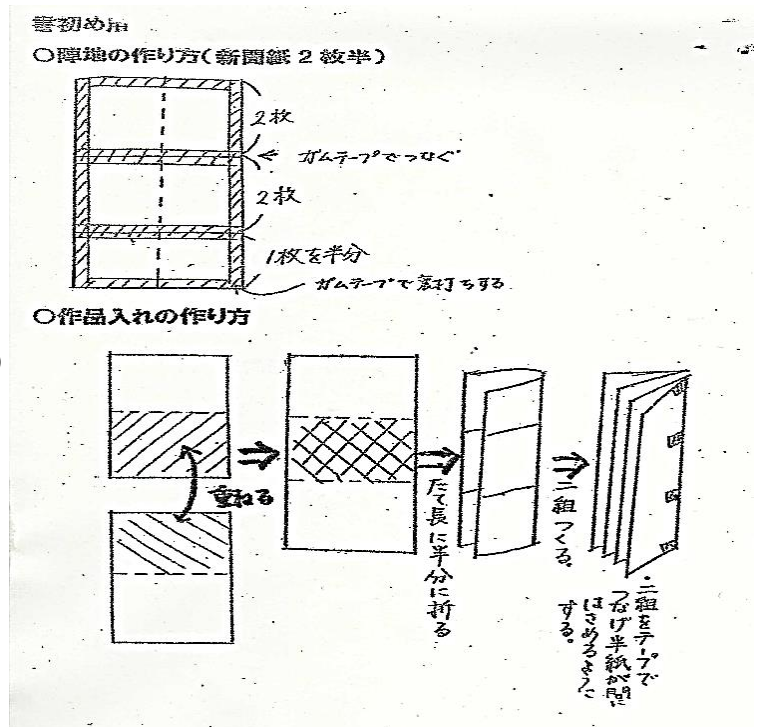 書初め用
○陣地の作り方(新聞紙2枚半)
2枚
ガムテープでつなぐ
2枚
1枚を半分
ガムテープで裏打ちする
○作品入れの作り方
重ねる
たて長に半分に折る
二組つくる。
・二組をテープで
つなげ半紙が間に
はさめるように
する。